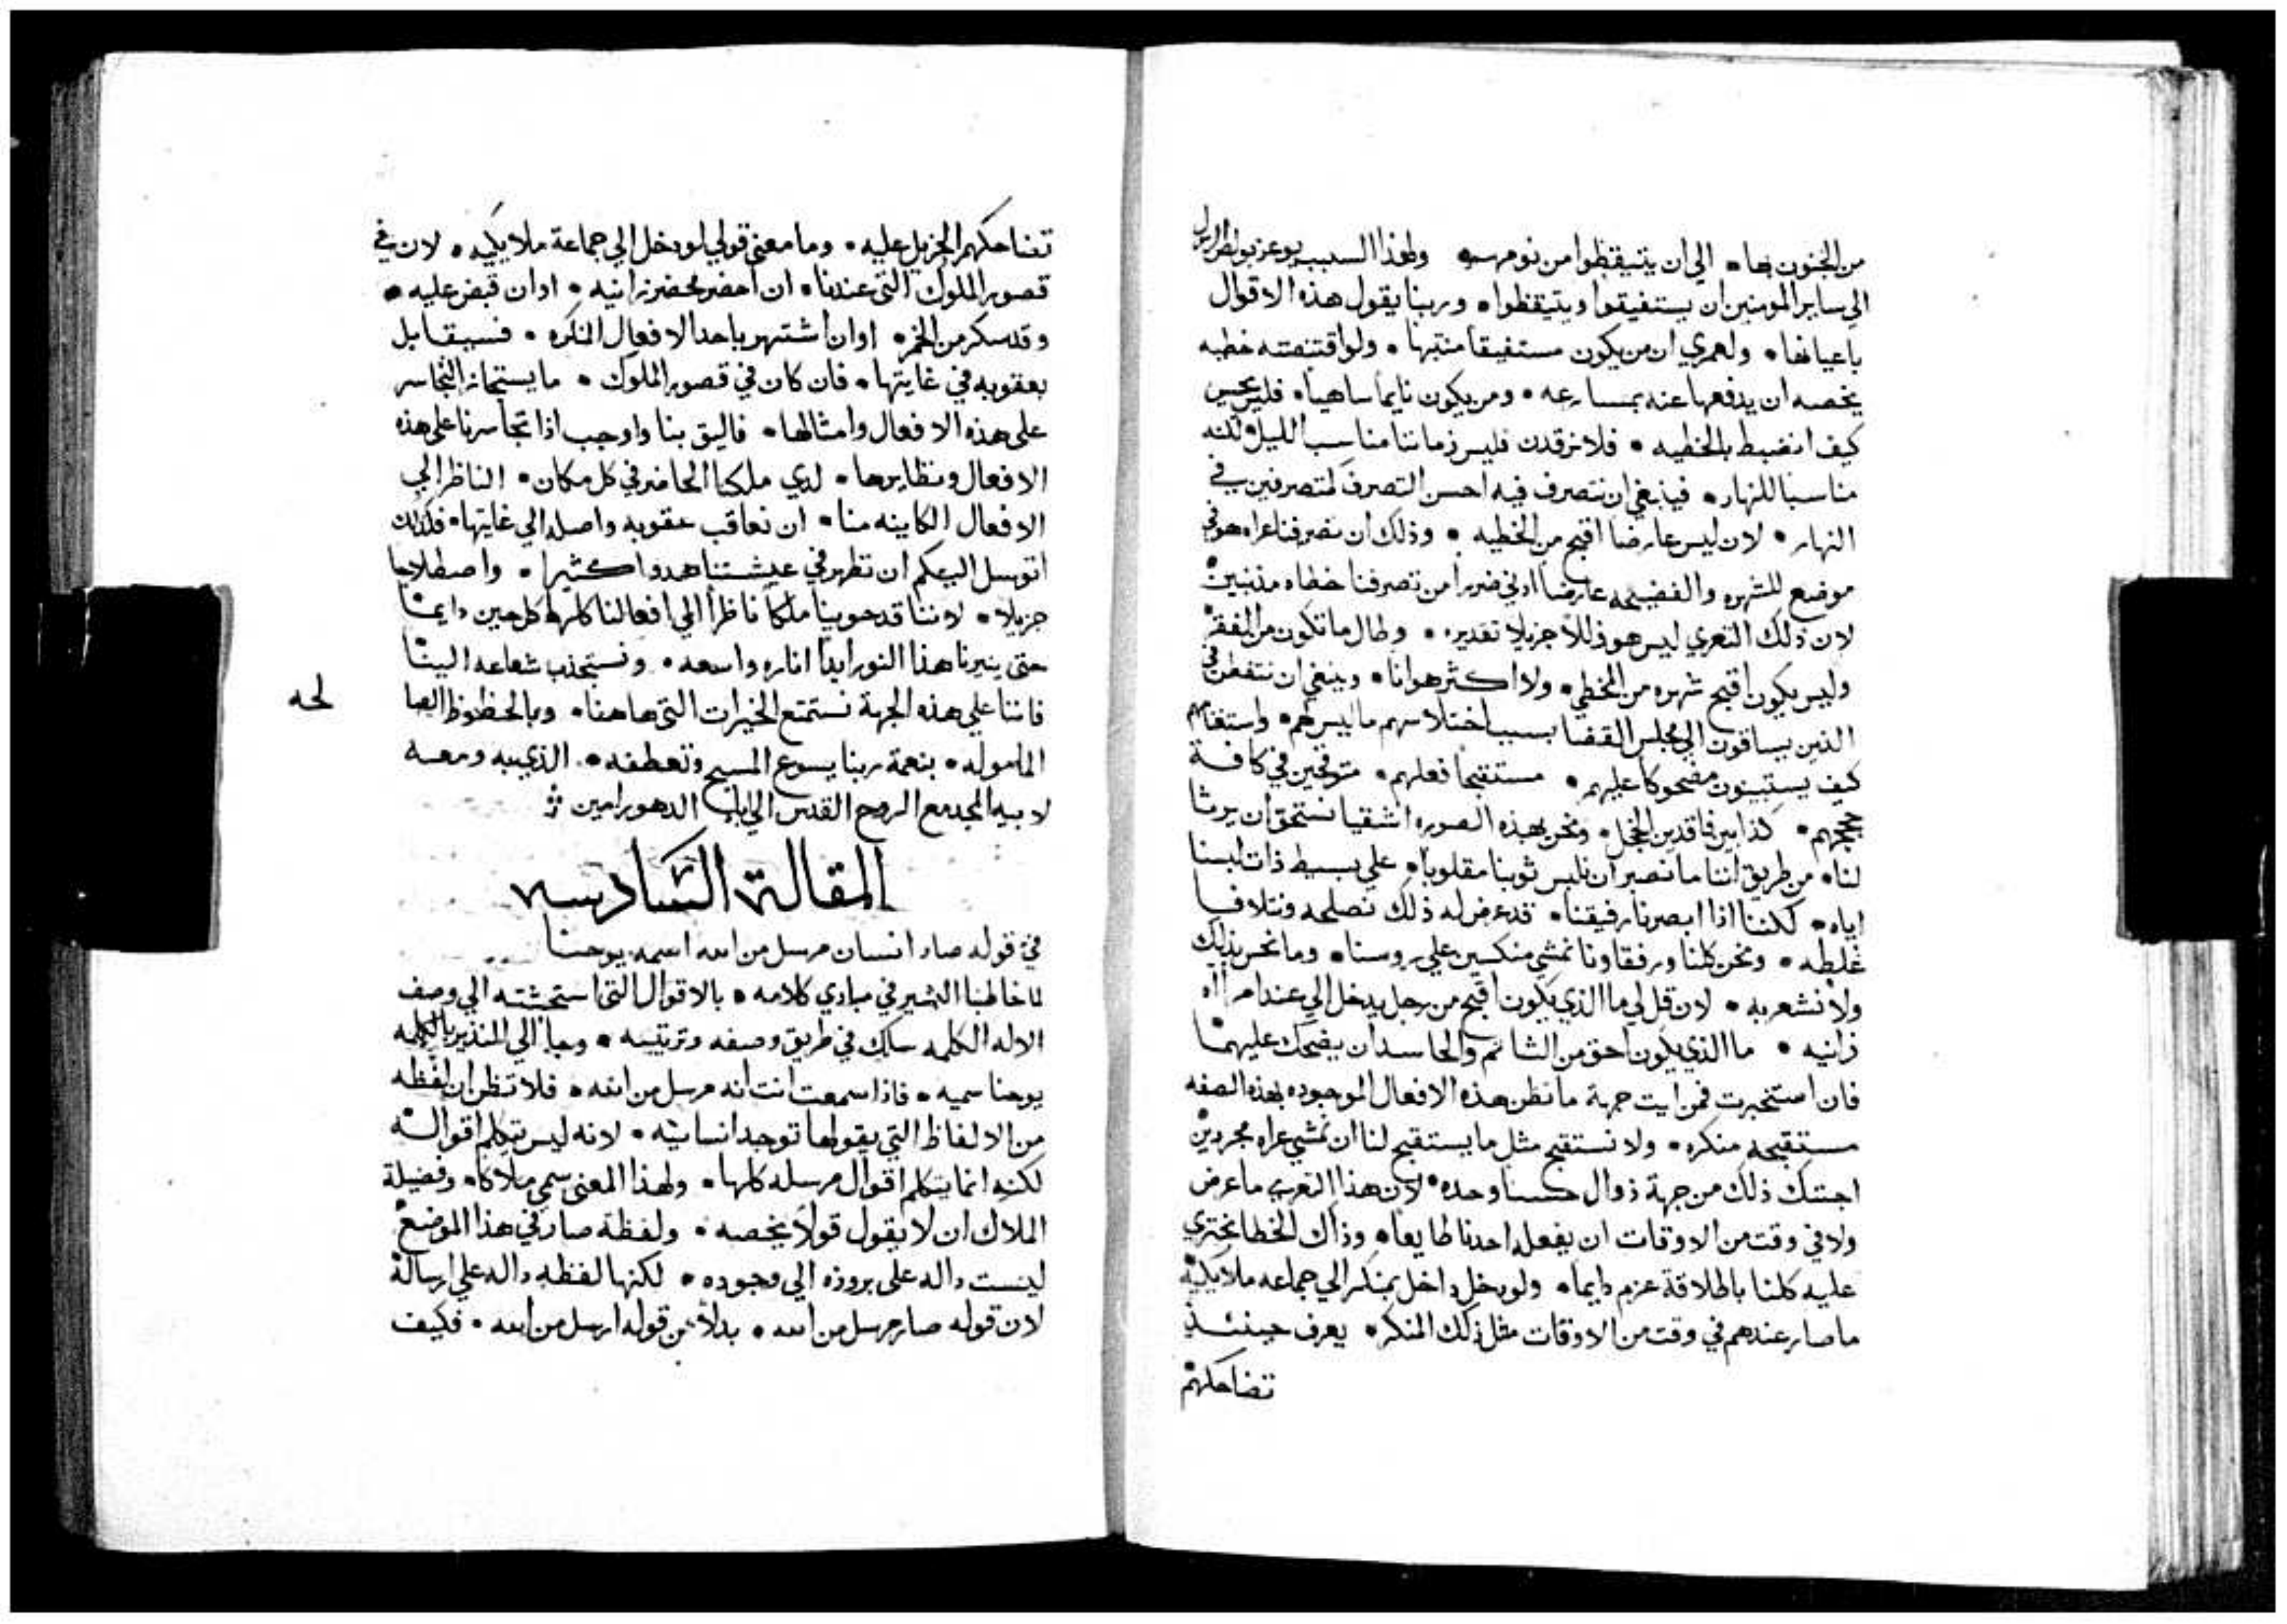 من الجنون بها • الي ان يتيقظوا من نومهم ولهذا السبب يوعز بولس الرسول
الي ساير المومنين ان يستفيقوا ويتيقظوا • وربنا يقول هذه الاقوال
باعيانها • ولعمري ان من يكون مستفيقا منتبها • ولو اقتنصته خطيه
يخصه ان يدفعها عنه بمسارعه • ومن يكون نايما ساهيا • فليس يحس
كيف انضبط بالخطيه • فلا نرقدن فليس زماننا مناسبا لليل لكنه
مناسبا للنهار • فينبغي ان نتصرف فيه احسن التصرف كمتصرفين في
النهار • لان ليس عارضا اقبح من الخطيه • وذلك ان تصرفنا عراه هو في
موضع للشهره والفضيحه عارضا ادني ضررا من تصرفنا خطاه مذنبين
لان ذلك التعري ليس هو زللا جزيلا تقديره • وطال ما تكون من الفقر
وليس يكون اقبح شهره من الخطي • ولا اكثر هوانا • وينبغي ان نتفطن في
الذين يساقون الي مجلس القضا بسبب اختلاسهم ما ليس لهم • واستغنامهم
كيف يستبينون مضحوكا عليهم • مستقبحا فعلهم • متوقحين في كافة
حججهم • كذابين فاقدين الخجل • ونحن بهذه الصوره اشقيا نستحق ان يرثا
لنا • من طريق اننا ما نصبر ان نلبس ثوبنا مقلوبا • علي بسيط ذات لبسنا
اياه • لكننا اذا ابصرنا رفيقنا • قد عرض له ذلك نصلحه ونتلافا
غلطه • ونحن كلنا ورفقاونا نمشي منكسين علي روسنا • وما نحس بذلك
ولا نشعر به • لان قل لي ما الذي يكون اقبح من رجل يدخل الي عند امراه
زانيه • ما الذي يكون احق من الشاتم والحاسد ان يضحك عليهما
فان استخبرت فمن ايت جهة ما نظن هذه الافعال الموجوده بهذه الصفه
مستقبحه منكره • ولا نستقبح مثل ما يستقبح لنا ان نمشي عراه مجردين
اجبتك ذلك من جهة زوال حسنا وحده • لان هذا التعري ما عرض
ولا في وقت من الاوقات ان يفعله احدنا طايعا • وذاك الخطا نجتري
عليه كلنا باطلاقة عزم دايما • ولو دخل داخل بمنكر الي جماعه ملايكيه
ما صار عندهم في وقت من الاوقات مثل ذلك المنكر • يعرف حينئذ
تضاحكهم
تضاحكهم الجزيل عليه • وما معني قولي لو دخل الي جماعة ملايكيه • لان في
قصور الملوك التي عندنا • ان احضر محضر زانيه • او ان قبض عليه •
وقد سكر من الخمر • او ان اشتهر باحد الافعال المنكره • فسيقابل
بعقوبه في غايتها • فان كان في قصور الملوك • ما يستجاز التجاسر
علي هذه الافعال وامثالها • فاليق بنا واوجب اذا تجاسرنا علي هذه
الافعال ونظايرها • لدي ملكنا الحاضر في كل مكان • الناظر الي
الافعال الكاينه منا • ان نعاقب عقوبه واصله الي غايتها • فلذلك
اتوسل اليكم ان تظهر في عيشتنا هدوا كثيرا • واصطلاحا
جزيلا • لاننا قد حوينا ملكا ناظرا الي افعالنا كلها كل حين دايما
حتي ينيرنا هذا النور ابدا اناره واسعه • ونستجذب شعاعه الينا
فاننا علي هذه الجهة نستمتع الخيرات التي هاهنا • وبالحظوظ
الماموله • بنعمة ربنا يسوع المسيح وتعطفه • الذي به ومعه
لابيه المجد مع الروح القدس الي اباد الدهور امين
لحه
المقالة السادسه
في قوله صار انسان مرسل من الله اسمه يوحنا
لما خاطبنا البشير في مبادي كلامه • بالاقوال التي استحثته الي وصف
الاله الكلمه سلك في طريق وصفه وترتيبه • وجا الي المنذير بالكلمه
يوحنا سميه • فاذا سمعت انت انه مرسل من الله • فلا تظن ان لفظه
من الالفاظ التي يقولها توجد انسانيه • لانه ليس يتكلم اقواله
لكنه انما يتكلم اقوال مرسله كلها • ولهذا المعني سمي ملاكا • وفضيلة
الملاك ان لا يقول قولا يخصه • ولفظة صار في هذا الموضع
ليست داله علي بروزه الي وجوده • لكنها لفظه داله علي ارساله
لان قوله صار مرسل من الله • بدلا من قوله ارسل من الله • فكيف